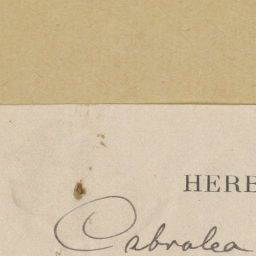 HERB
Cabralea